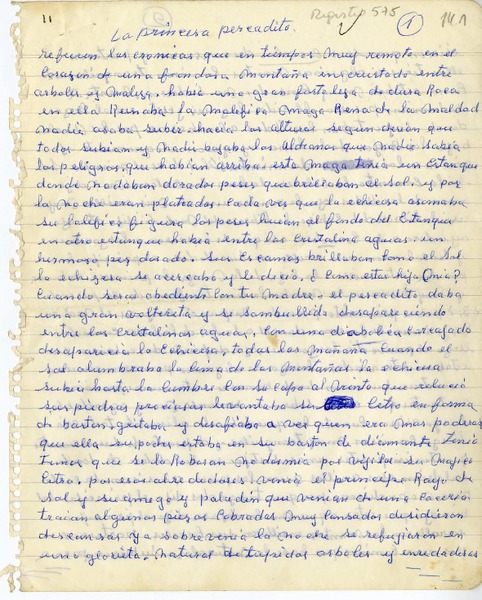 11
Registro 575
1
141
La princesa pescadito.
refieren las cronicas, que en tiempos muy remoto, en el
Corazon de una frondosa, Montaña incrustado entre
arboles y Maliza, habia una gran fortaleza, de dura Roca
en ella Reinaba la Malefica Maga Rena de la Maldad
Nadie osaba subir hacia las alturas según decian que
todos subian y Nadie bajaba los Aldeanos que Nadie sabia
los peligros, que habian arriba, esta Maga tenia un Estanque
donde Nadaban dorados peses que brillaban al Sol, y por
la Noche eran plateados. Cada ves que la echisera asomaba
su Malefica figura los peses huian al fondo del Estanque
en otro estanque habia entre las Cristalina aguas, un
hermoso pes dorado. Sus Escamas brillaban Como el Sol
la echizera se acercaba y le decia, ¿ Como estas hija Mia?
Cuando seras obediente Con tu Madre, el pescadito, daba
una gran voltereta y se sambullida desapareciendo
entre las Cristalinas aguas, Con una diabolica Carcajada
desaparecia la Echicesa, todas las Mañana Cuando el
sal alumbraba la Cima de las Montañas la echicera
subia hasta la Cumbre Con su Capa al Viento que relucia
sus piedras preciosas levantaba su Cetro en forma
de baston, gritaba y desafiaba a ver quien era Mas poderosa
que ella su poder estaba en su baston de diamante, Tenia
Temor que se la Robaran No dormia por vigilar su Magico
Cetro. por esos alrededores, venia el principe Rayo de
Sol y su amigo y paladin que venian de una Caceria
traian algunas piezas Cobradas Muy Cansados desidieron
descansar ya sobrevenia la noche se refugiaron en
una glorieta. Natural de tupidos arboles y enredaderas